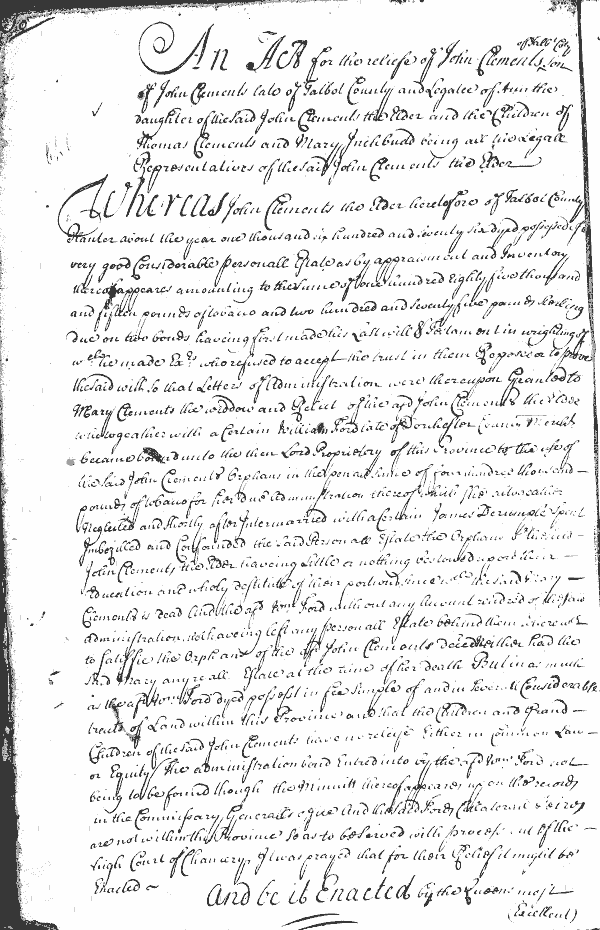 of Talbt Coty
An Act for the reliefe of John Clements son
of John Clements late of Talbot County and Legatee of Ann the
daughter of the said John Clements the Elder and the Children of
Thomas Clements and Mary being all the Legall
Representatives of the said John Clements the Elder
Whereas John Clements the Elder heretofore of Talbot County
Planter about the year one thousand six hundred and seventy six dyed possessed of a
very good Considerable Personall Estate as by appraisment and Inventory
thereof appears amounting to the sume of one hundred Eighty five thousand
and fifteen pounds of tobacco and two hundred and seventy five pounds sterling
due on two bonds having first made his Last will & Testament in wrighting of
wch he made Exrs who refused to accept the trust in them Reposed or to prove
the said will so that Letters of Administration were thereupon Granted to
Mary Clements the widdow and Relict of the afd John Clements the Elder
who togeather with a Certain William Ford late of Dorchester County
became bound unto the then Lord Proprietory of this Province to the use of
the said John Clements Orphans in the penall sume of four hundred thousand
pounds of tobacco for her due Administration thereof which she altogeather
Neglected and shortly after Intermarried with a Certain James Derumple spent
Imbezilled and Confounded the said Personall Estate the Orphans of the said
John Clements the Elder haveing Little or nothing bestowed upon their
Education and wholy destitute of their portions since wch the said Mary
Clements is dead And the afd Wm Ford without any Amount rendred of the said
administration not haveing left any personall Estate behind them
to satisfie the Orphans of the afd John Clements decd neither had the
said Mary any reall Estate at the time of her death But in as much
as the afd Wm Ford dyed possest in fee simple of and in severall Considerable
tracts of Land within this Province and that the Children and Grand
Children of the said John Clements have no releife Either in Common Law
or Equity The administration bond Entred into by the afd Wm Ford not
being to be found though the Minnitt thereof appeares upon the records
in the Commissary Generalls And the said Fords Collaterall heires
are not within this Province so as to be served with process out of the
high Court of Chancery It was prayed that for their Releif it might be
Enacted
And be it Enacted by the Queens most
(Excellent)